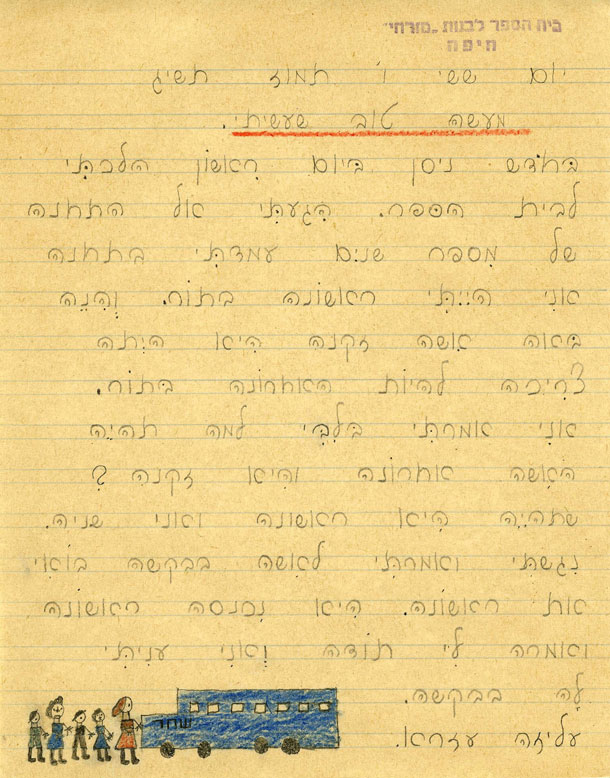 בית הספר לבנות "מזרחי"
חיפה
יום ששי ו' תמוז תשיג
מעשה טוב שעשיתי.
בחדש ניסן ביום ראשון הלכתי
לבית הספר. הגעתי אל התחנה
של מספר שנים עמדתי בתחנה
אני הייתי ראשונה בתור. והנה
באה אשה זקנה היא היתה
צריכה להיות האחרונה בתור.
אני אמרתי בלבי למה תהיה
האשה אחרונה והיא זקנה ?
שתהיה היא ראשונה ואני שניה.
נגשתי ואמרתי לאשה בבקשה בואי
את ראשונה. היא נכנסה ראשונה
ואמרה לי תודה ואני עניתי
לה בבקשה.
עליזה עזרא.